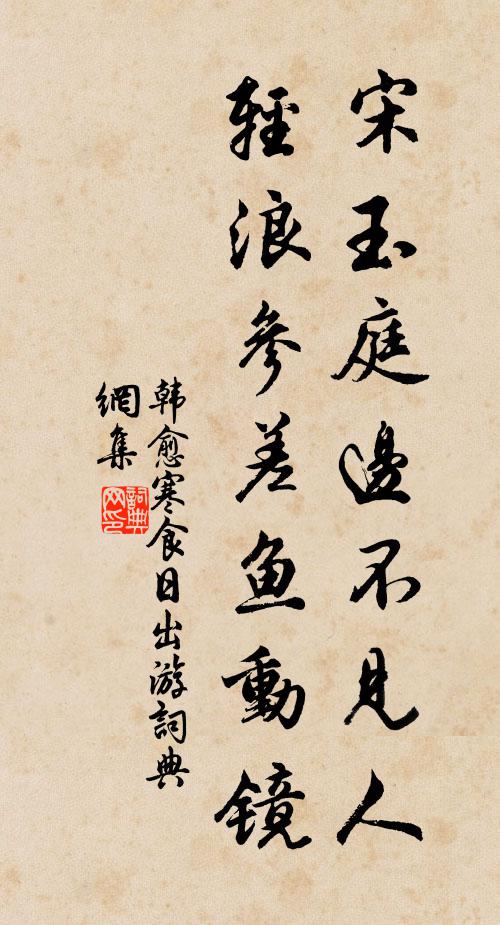 宋玉庭邊不見人
輕浪參差鱼動鏡
韩愈寒食日出游詞典
網集
詞典
网印